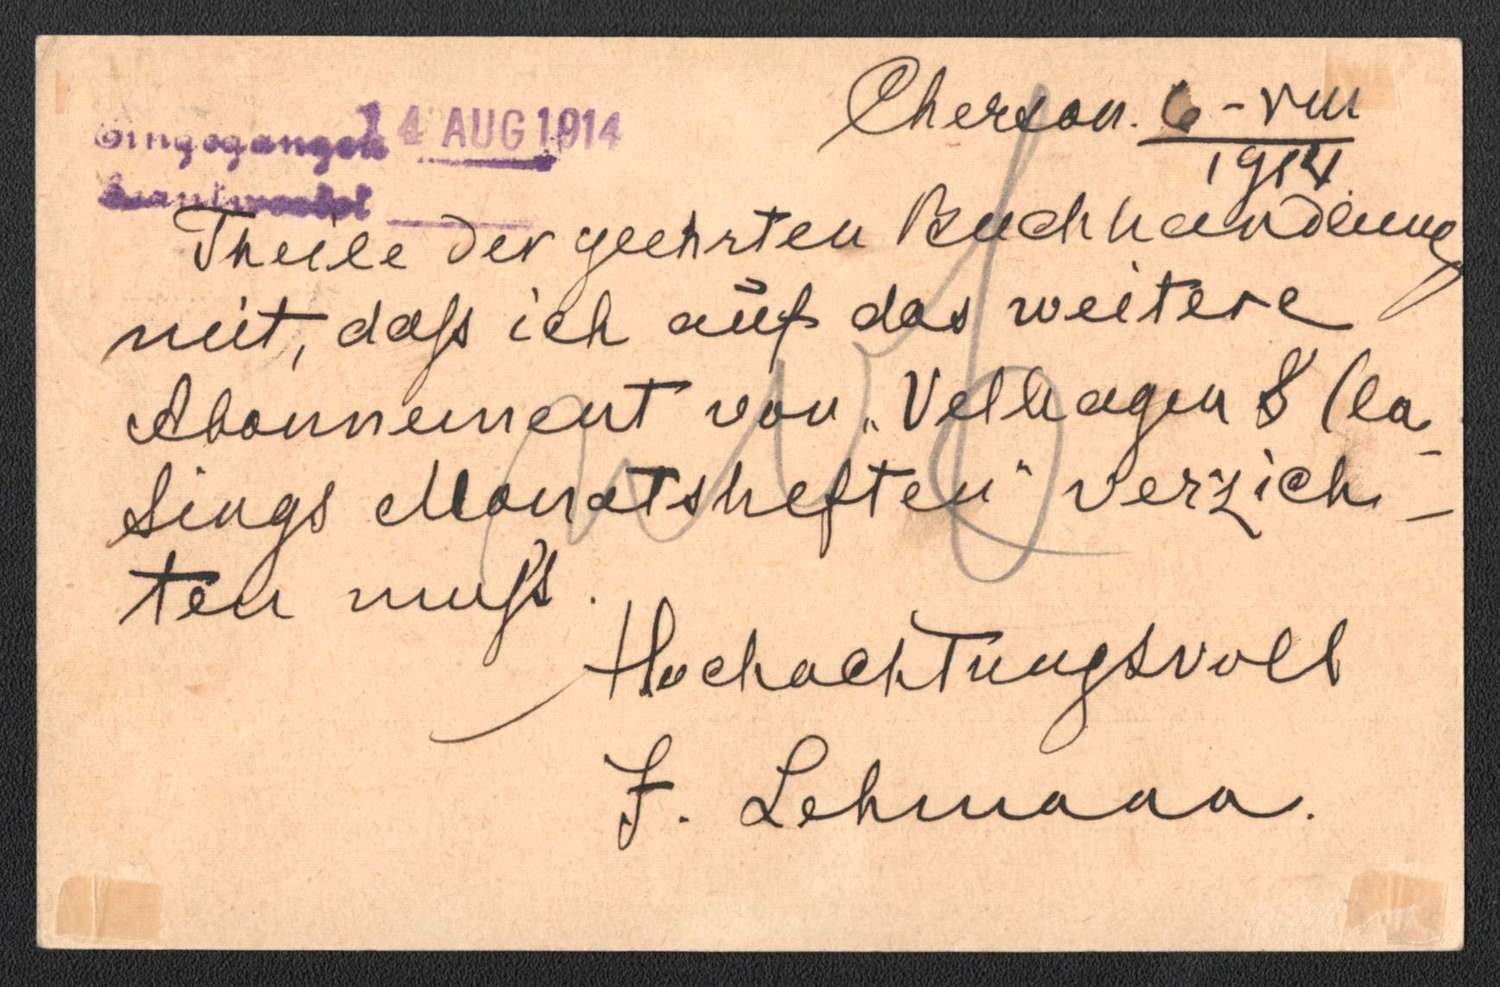 Cherson. 6-VIII
1914.
Eingegangen 14 AUG 1914
Beantwortet
Theile der geehrten Buchhandlung
mit, daß ich auf das weitere
Abonnement von „Velhagen & Cla-
sings Monatsheften" verzich-
ten muß.
Hochachtungsvoll
F. Lehmann.